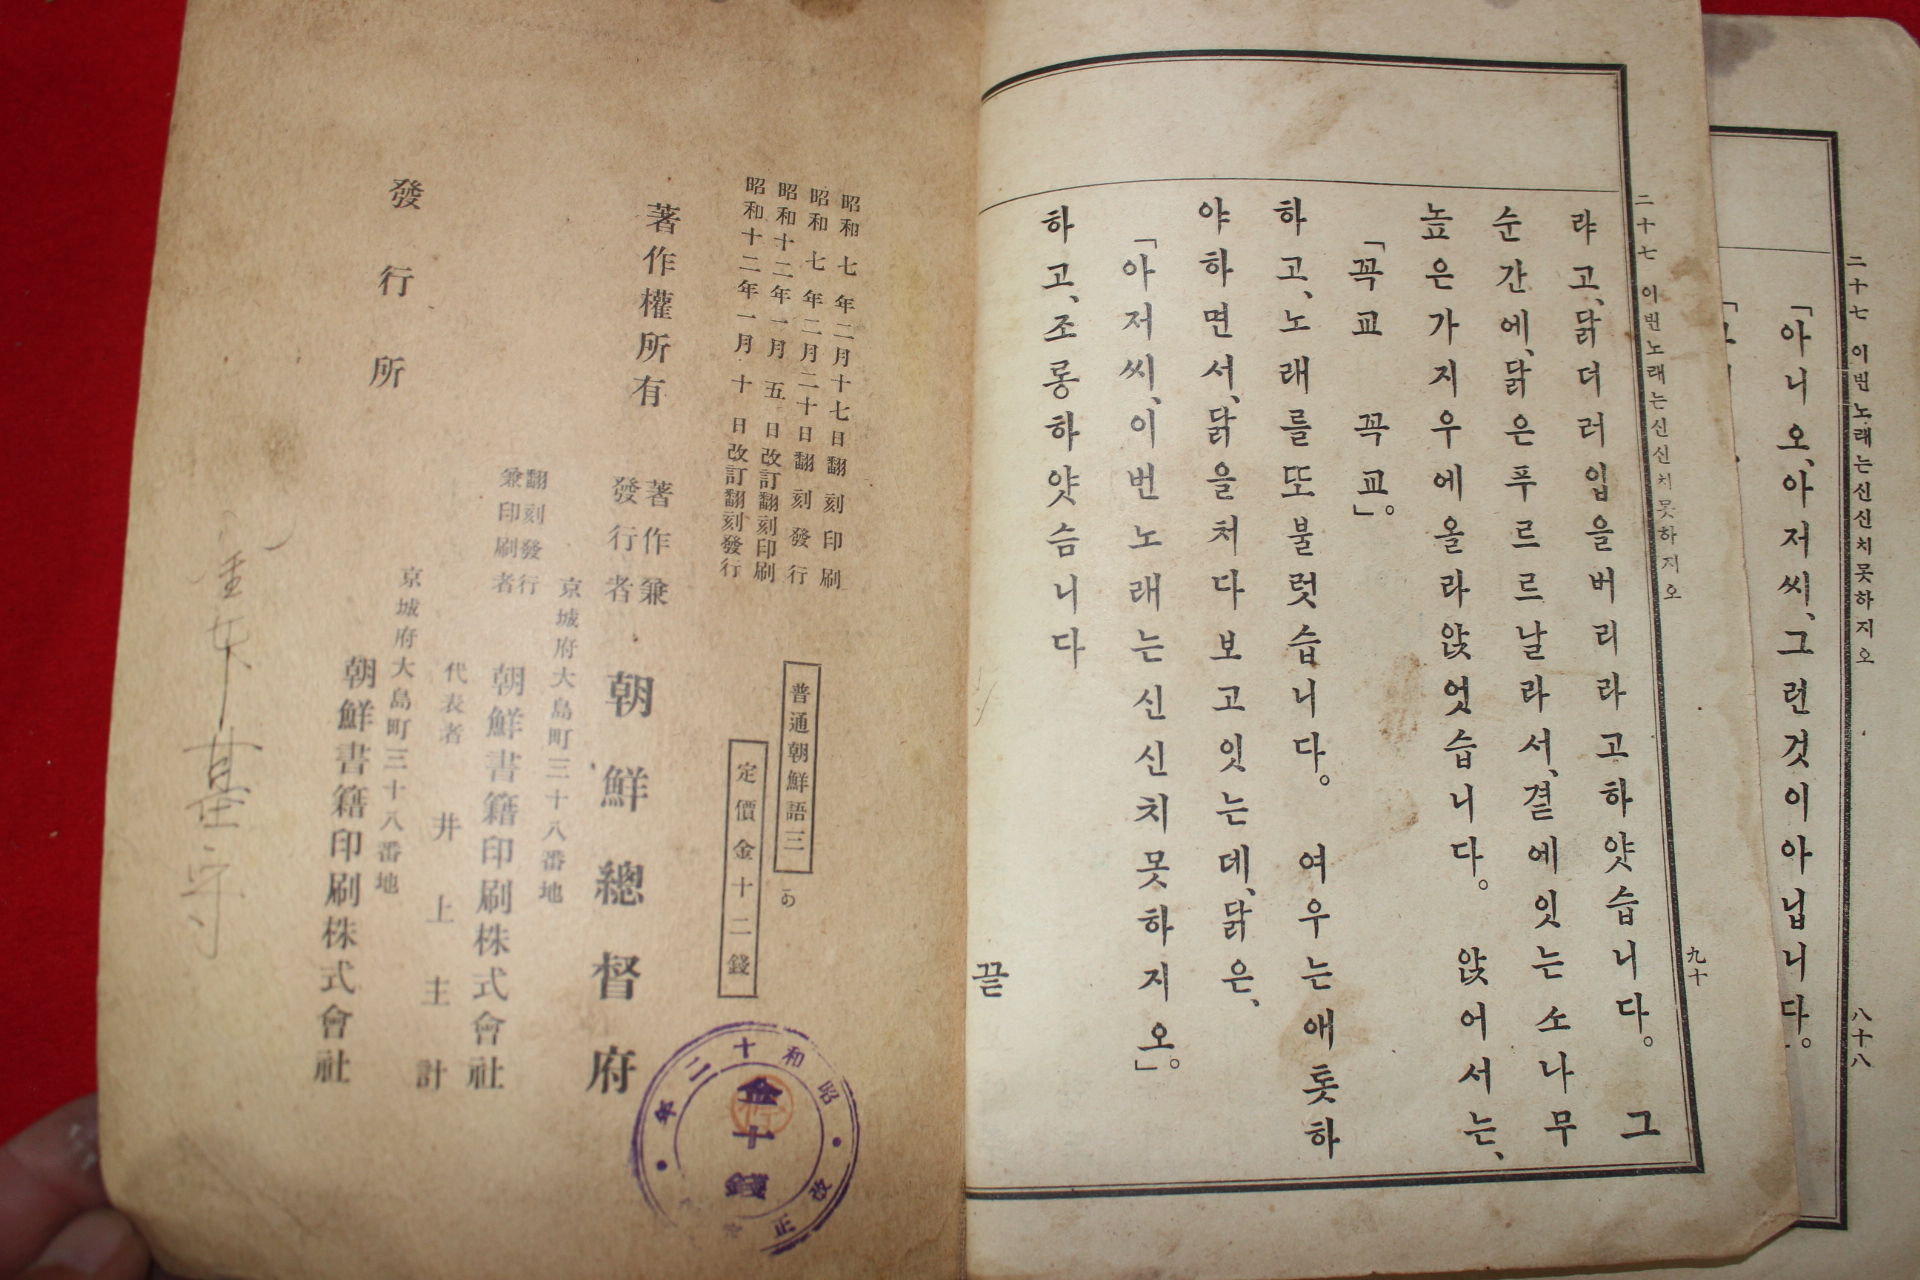 二十七 이번노래는신신치못하지오
八十八
「아니오、아저씨、그런것이아닙니다。
二十七 이번노래는신신치못하지오
九十
랴고、닭더러입을버리라고하얏습니다。 그
순간에、닭은푸르르날라서、곁에잇는소나무
높은가지우에올라앉엇습니다。 앉어서는、
「꼭교 꼭교」。
하고、노래를또불럿습니다。 여우는애톳하
야하면서、닭을처다보고잇는데、닭은、
「아저씨、이번노래는신신치못하지오」。
하고、조롱하얏습니다
끝
昭和七年二月十七日翻刻印刷
昭和七年二月二十日翻刻發行
昭和十二年一月五日改訂翻刻印刷
昭和十二年一月十日改訂翻刻發行
普通朝鮮語三
定價金十二錢
著作權所有
著作兼
發行者
朝鮮總督府
京城府大島町三十八番地
翻刻發行
兼印刷者
朝鮮書籍印刷株式會社
代表者 井上主計
京城府大島町三十八番地
發行所
朝鮮書籍印刷株式會社
昭和十二年
改正
金十錢